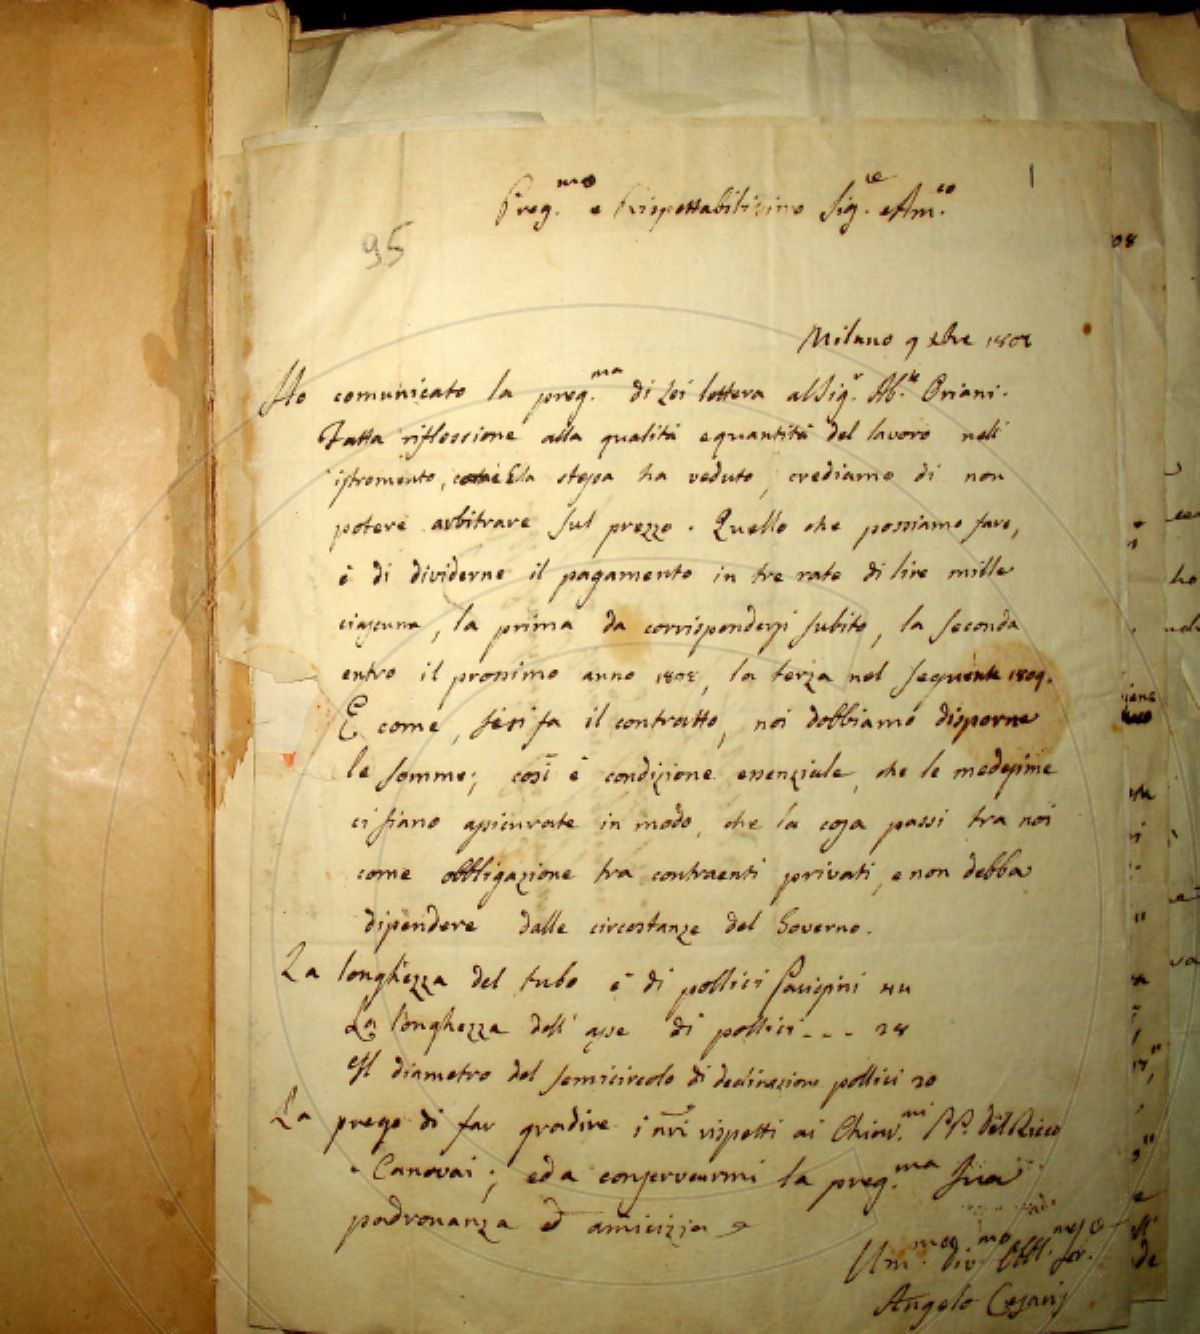 1
Preg.mo e Rispettabilissimo Sig.re e Am.co
95
08
Milano 9 xbre
Ho comunicato la preg.ma di Lei lettera al Sig.r Ab.te Oriani.
Fatta riflessione alla qualità e quantità del lavoro nell'
istromento, Ella stessa ha veduto, crediamo di non
potere arbitrare sul prezzo. Quello che possiamo fare,
è di dividerne il pagamento in tre rate di lire mille
ciascuna, la prima da corrispondersi subito, la seconda
entro il prossimo anno 1808, la terza nel seguente 1809.
E come, se si fa il contratto, noi dobbiamo disporne
le somme; così è condizione essenziale, che le medesime
ci siano assicurate in modo, che la cosa passi tra noi
come obbligazione tra contraenti privati, e non debba
dipendere dalle circostanze del Governo.
La longhezza del tubo è di pollici Parigini
La longhezza dell' asse di pollici - - - 28
Il diametro del semicircolo di declinazione pollici 20
La prego di far gradire i nri rispetti ai Chiar.mi PP. Del Ricco
e Canovai; ed a conservarmi la preg.ma sua
padronanza ed amicizia
Um.mo div.mo Obbl.mo ser.e
Angelo Cesaris